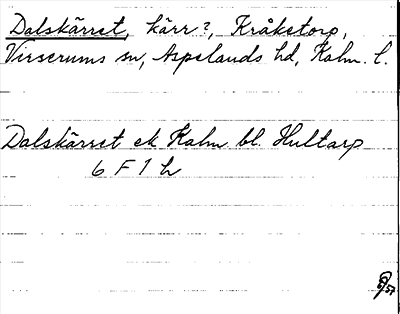 Dalskärret, kärr?, Kråketorp,
Virserums sn, Aspelands hd, Kalm. l.
Dalskärret ek Kalm bl. Hultarp
6 F 1 h